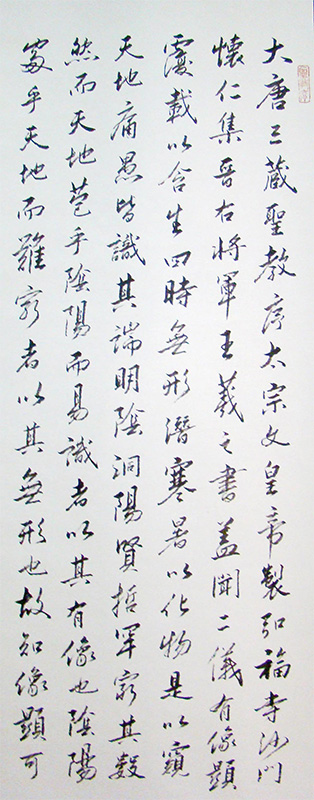 大唐三蔵聖教序太宗文皇帝製弘福寺沙門
懷仁集晉右將軍王羲之書蓋聞二儀有像顯
覆載以含生四時無形潛寒暑以化物是以窺
天地庸愚皆識其端明陰洞陽賢哲罕窮其數
然而天地苞乎陰陽而易識者以其有像也陰陽
處乎天地而難窮者以其無形也故知像顯可